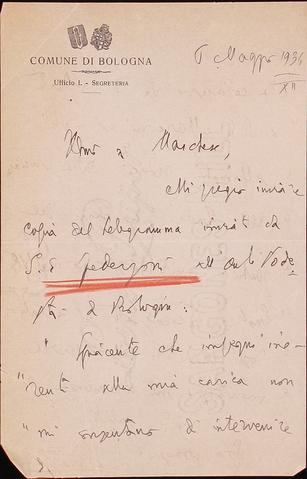 COMUNE DI BOLOGNA
Ufficio I. - Segreteria
6 Maggio 1934
XII
Marchese,
Mi pregio inviare
copia del telegramma inviato da
S. E. Federzoni all' On. Pode
stà di Bologna:
" Spiacente che impegni ine-
" renti alla mia carica non
" mi consentano di intervenire